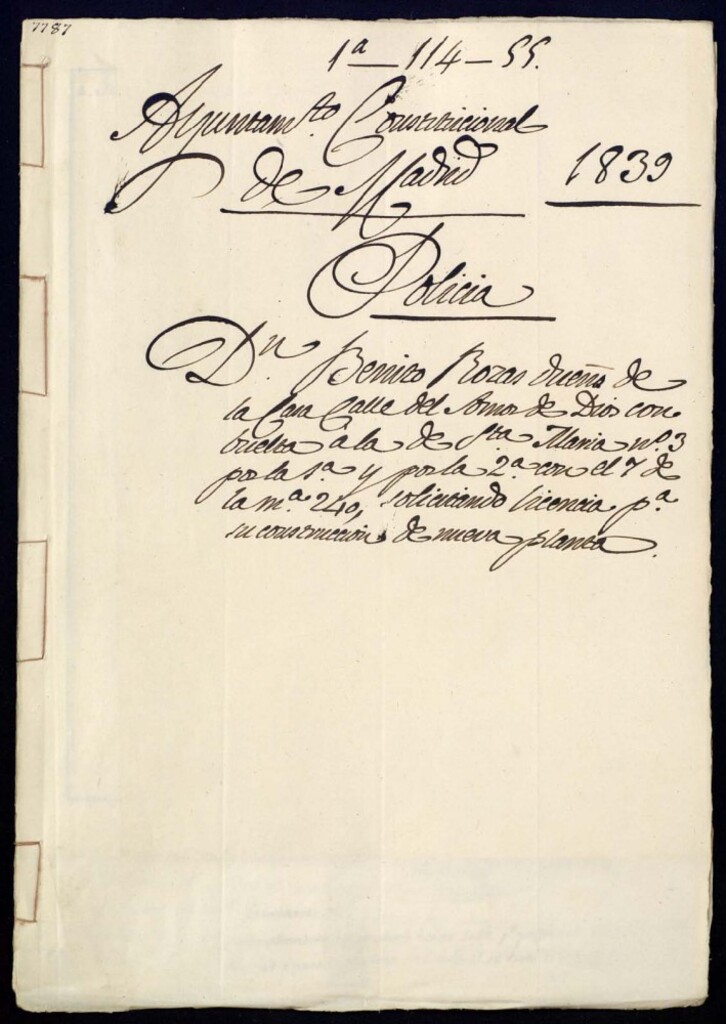 7787
1ª — 114 — 55.
Ayuntamto. Constitucional
de Madrid
1839
Policia
Dn. Benito Rozas dueño de
la Casa Calle del Amor de Dios con
buelta á la de Sta. Maria nº. 3
por la 1ª y por la 2ª con el 7 de
la mª 240, solicitando licencia pª
su construccion de nueva planta.